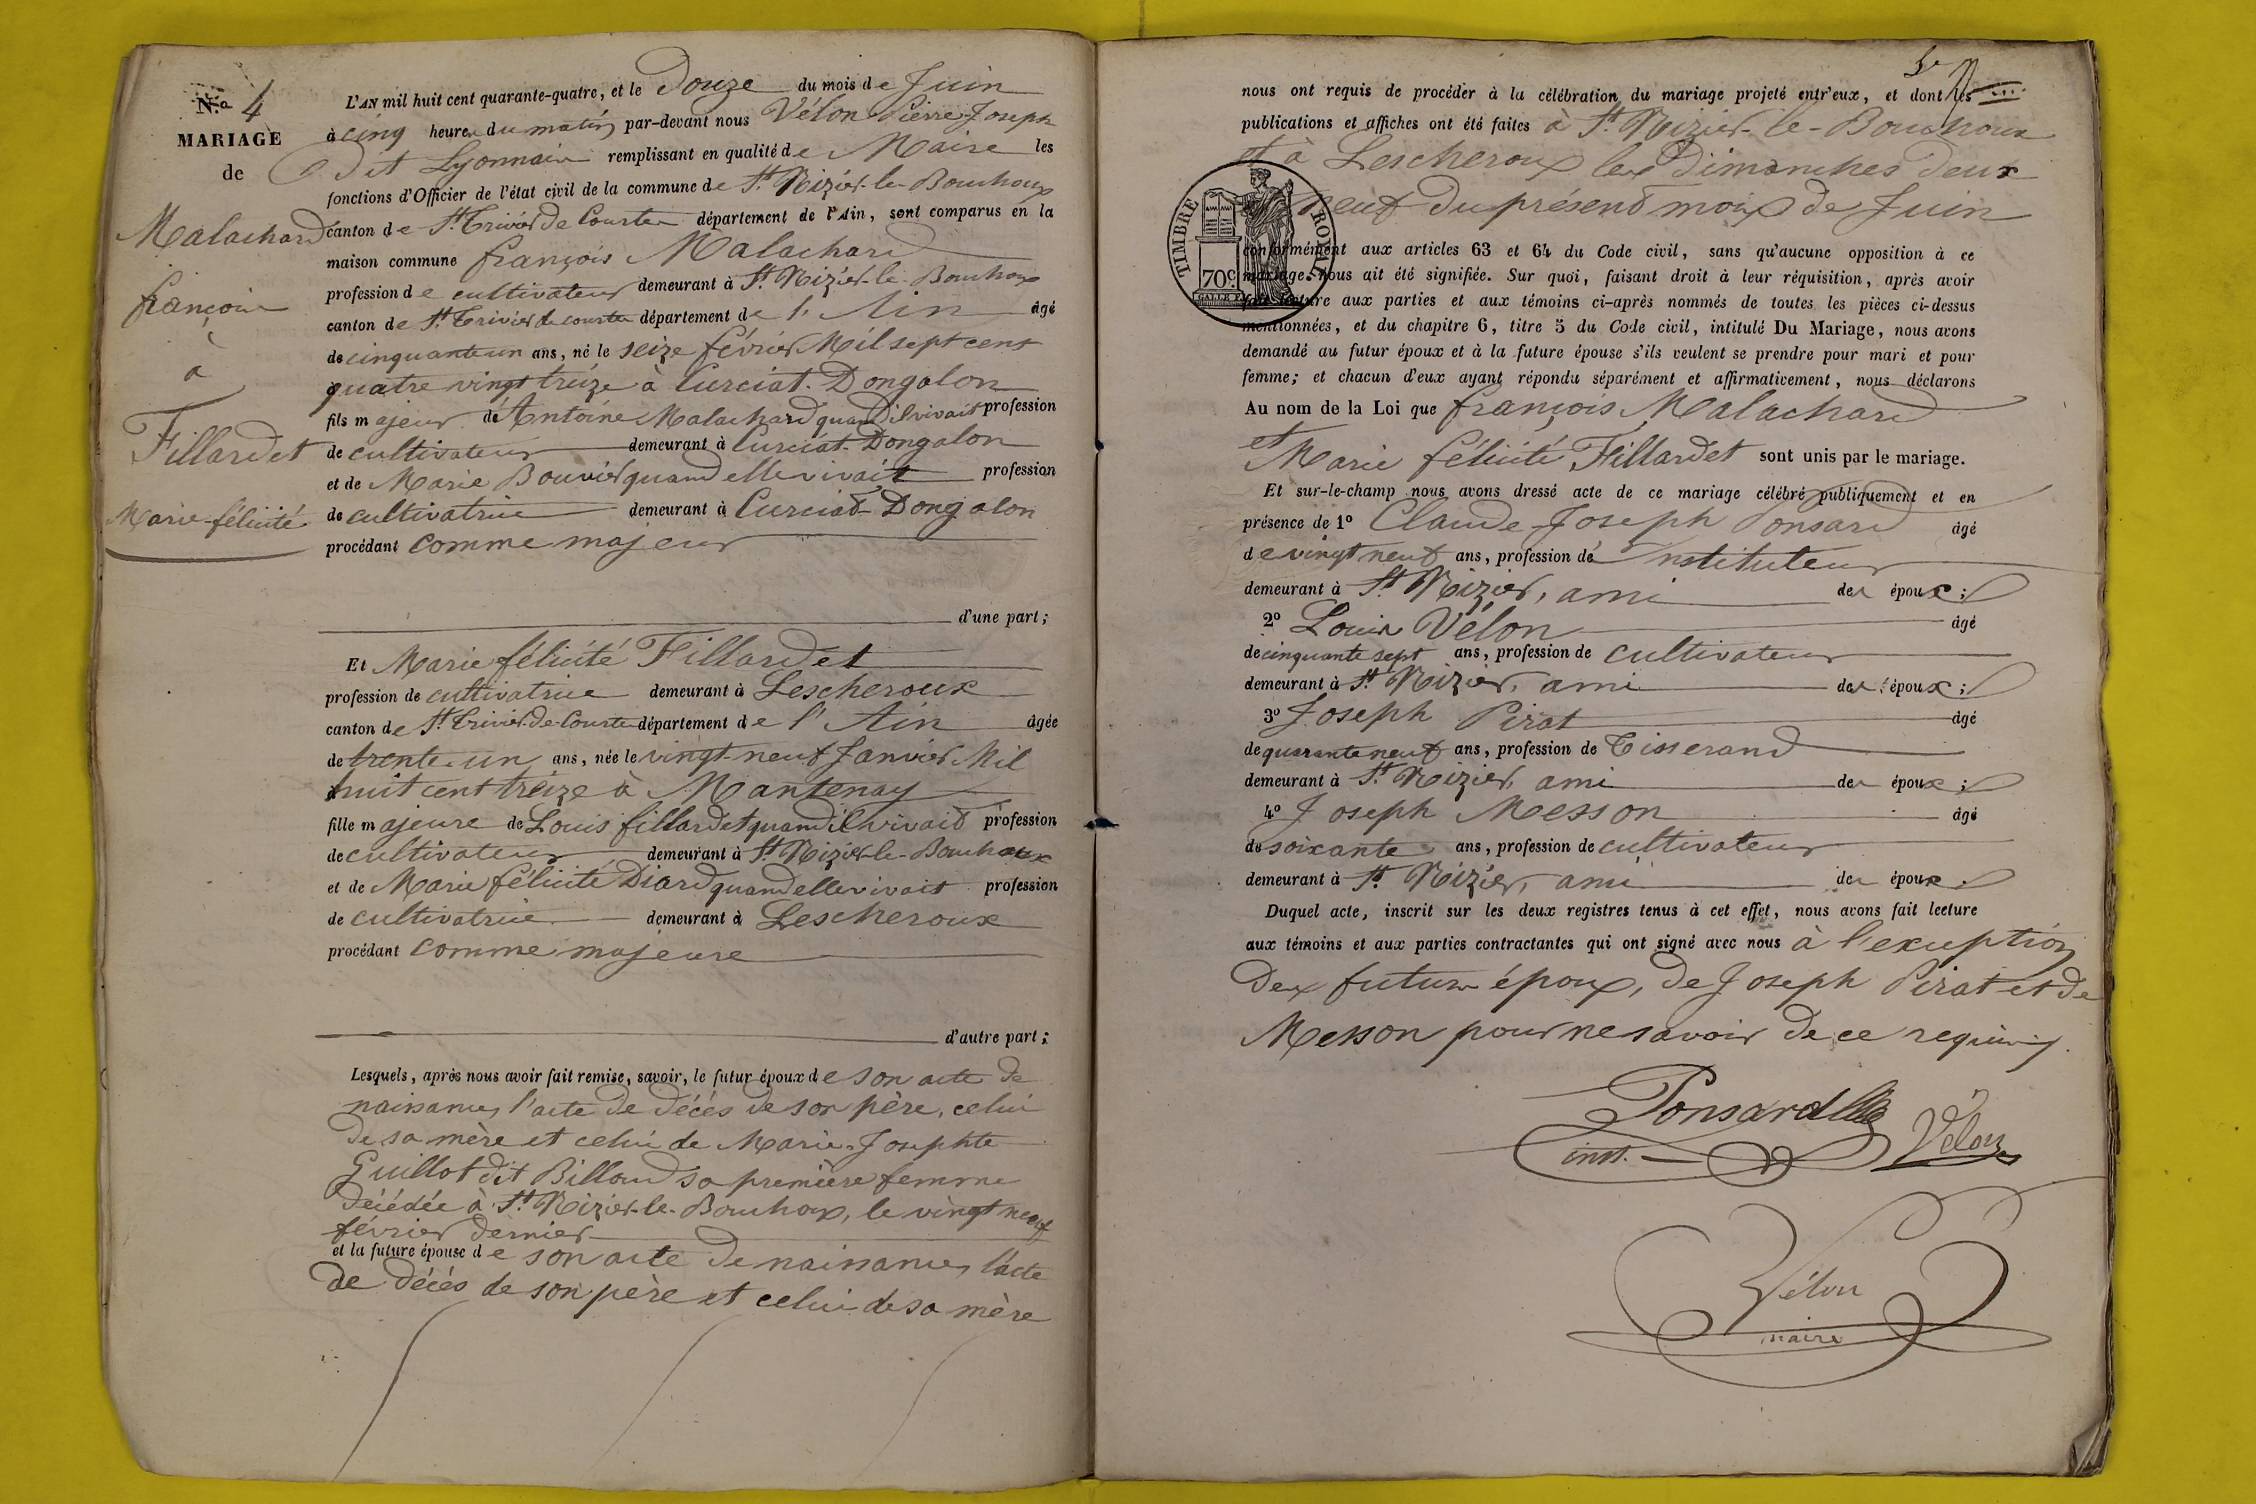 No 4
MARIAGE
de
Malachard
françois
à
Fillardet
Marie-félicité
L'AN mil huit cent quarante-quatre, et le Douze du mois de Juin
à cinq heures du matin par-devant nous Vélon Pierre-Joseph
Dit Lyonnais remplissant en qualité de Maire les
fonctions d'Officier de l'état civil de la commune de St. Nizier-le-Bouchoux
canton de St. Trivier de Courtes département de l'Ain, sont comparus en la
maison commune françois Malachard
profession de cultivateur demeurant à St. Nizier-le-Bouchoux
canton de St. Trivier de courtes département de l'Ain âgé
de cinquante un ans, né le seize février Mil sept cent
quatre vingt treize à Curciat-Dongalon
fils majeur de Antoine Malachard quand il vivait profession
de cultivateur demeurant à Curciat-Dongalon
et de Marie Bouvier quand elle vivait profession
de cultivatrice demeurant à Curciat-Dongalon
procédant comme majeur
d'une part;
Et Marie félicité Fillardet
profession de cultivatrice demeurant à Lescheroux
canton de St. Trivier-de-Courtes département de l'Ain âgée
de trente-un ans, née le vingt-neuf Janvier Mil
huit cent treize à Mantenay
fille majeure de Louis fillardet quand il vivait profession
de cultivateur demeurant à St. Nizier-le-Bouchoux
et de Marie félicité Diard quand elle vivait profession
de cultivatrice demeurant à Lescheroux
procédant comme majeure
d'autre part;
Lesquels, après nous avoir fait remise, savoir, le futur époux de son acte de
naissance, l'acte de décès de son père, celui
de sa mère et celui de Marie-Josephte
Guillot dit Billoud sa première femme
décédée à St. Nizier-le-Bouchoux, le vingt neuf
février dernier
et la future épouse de son acte de naissance, l'acte
de décès de son père et celui de sa mère
nous ont requis de procéder à la célébration du mariage projeté entr'eux, et dont les
publications et affiches ont été faites à St. Nizier-le-Bouchoux
et à Lescheroux les Dimanches deux
neuf du présent mois de Juin
TIMBRE ROYAL
70c.
conformément aux articles 63 et 64 du Code civil, sans qu'aucune opposition à ce
mariage nous ait été signifiée. Sur quoi, faisant droit à leur réquisition, après avoir
fait lecture aux parties et aux témoins ci-après nommés de toutes les pièces ci-dessus
mentionnées, et du chapitre 6, titre 5 du Code civil, intitulé Du Mariage, nous avons
demandé au futur époux et à la future épouse s'ils veulent se prendre pour mari et pour
femme; et chacun d'eux ayant répondu séparément et affirmativement, nous déclarons
Au nom de la Loi que françois Malachard
et
Marie félicité Fillardet sont unis par le mariage.
Et sur-le-champ nous avons dressé acte de ce mariage célébré publiquement et en
présence de 1o Claude-Joseph Ponsard âgé
de vingt neuf ans, profession de Instituteur
demeurant à St. Nizier, ami des époux;
2o Louis Vélon âgé
de cinquante sept ans, profession de cultivateur
demeurant à St. Nizier, ami des époux;
3o Joseph Pirat âgé
de quarante neuf ans, profession de Tisserand
demeurant à St. Nizier, ami des époux;
4o Joseph Messon âgé
de soixante ans, profession de cultivateur
demeurant à St. Nizier, ami des époux.
Duquel acte, inscrit sur les deux registres tenus à cet effet, nous avons fait lecture
aux témoins et aux parties contractantes qui ont signé avec nous à l'exception
des futurs époux, de Joseph Pirat et de
Messon pour ne savoir de ce requis.
Ponsard
inst.
Vélon
Vélon
maire